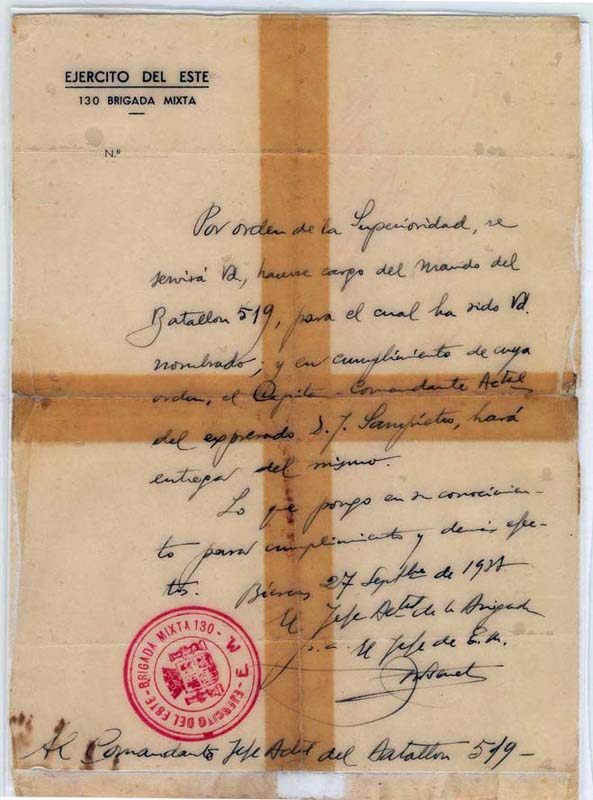 EJERCITO DEL ESTE
130 BRIGADA MIXTA
N.º
Por orden de la Superioridad, se
servirá Vd, hacerse cargo del Mando del
Batallon 519, para el cual ha sido Vd.
nombrado; y en cumplimiento de cuya
orden, el Capitan - Comandante Actal
del expresado D. J. Sampietro, hará
entrega del mismo.
Lo que pongo en su conocimien-
to para cumplimiento y demás efec-
tos. 27 Septbre de 193
El Jefe Actal de la Brigada
P. A. El Jefe de E. M.
EJERCITO DEL ESTE - BRIGADA MIXTA 130 - E. M.
Al Comandante Jefe Actal del Batallon 519 -